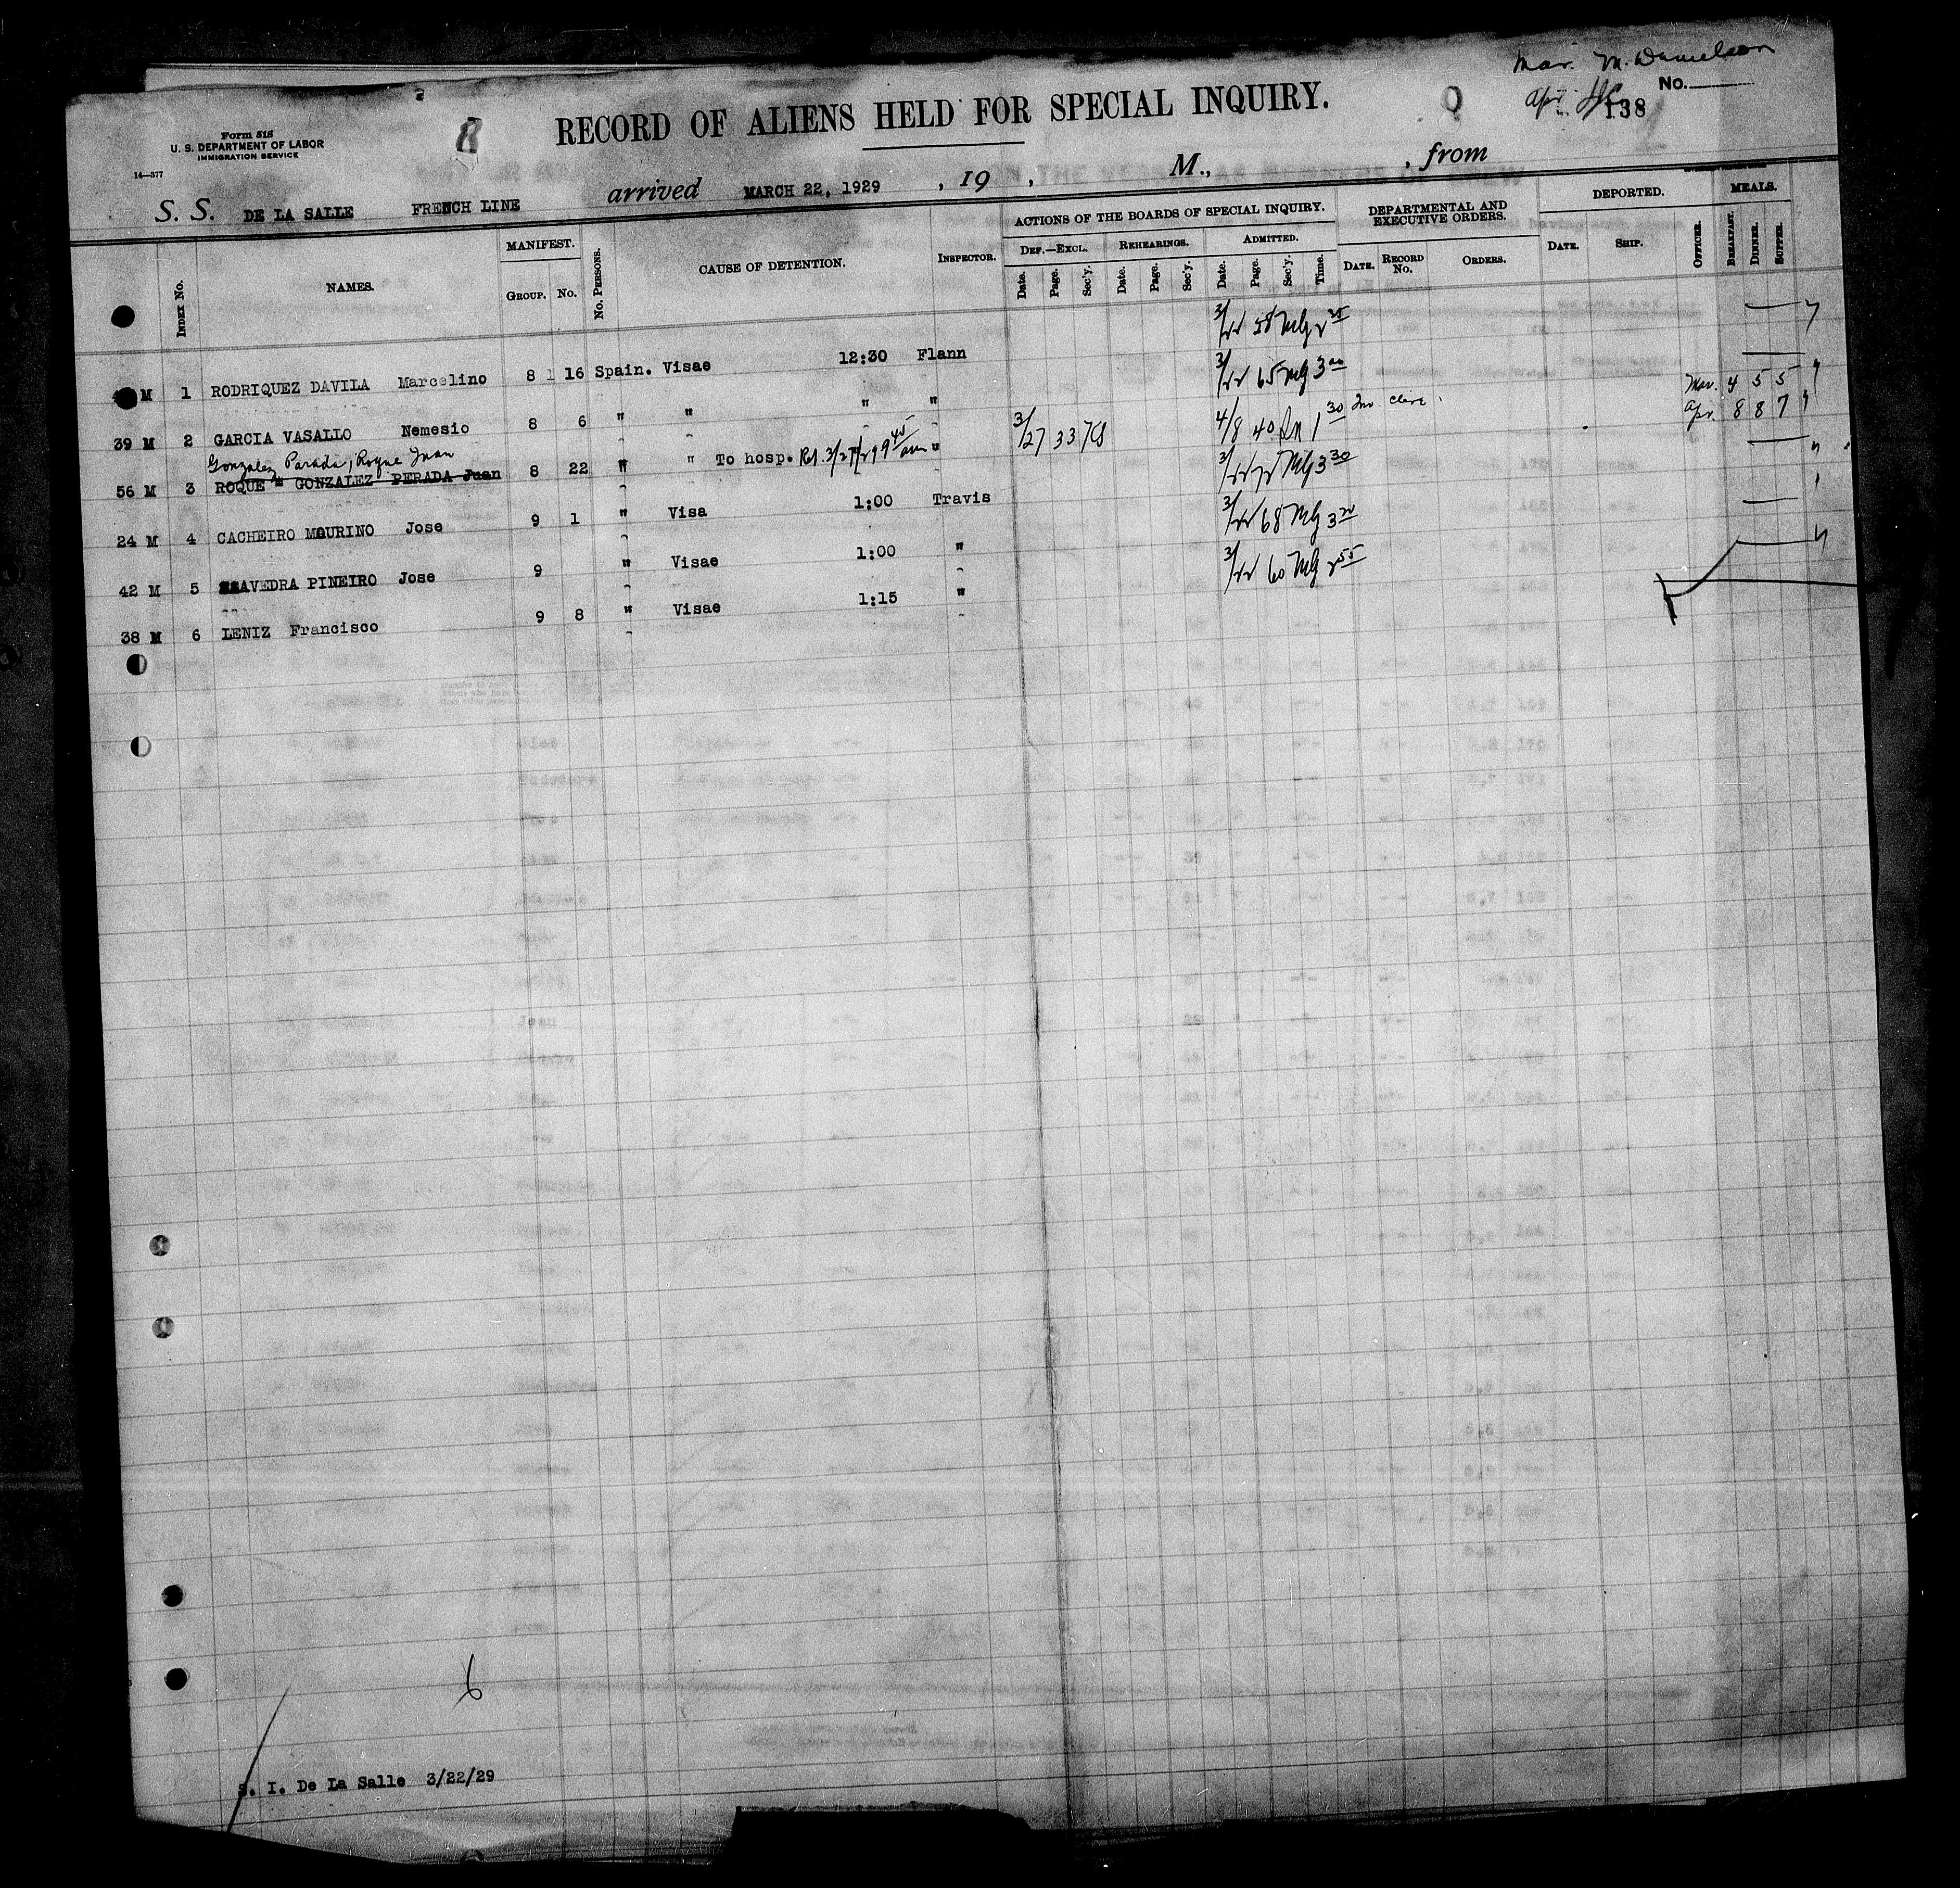 Mar. M. Danielson
No.
Apr.
138
Form 515
U. S. DEPARTMENT OF LABOR
IMMIGRATION SERVICE
14—377
8
RECORD OF ALIENS HELD FOR SPECIAL INQUIRY.
S. S. DE LA SALLE FRENCH LINE arrived MARCH 22, 1929 , 19 , M., , from
INDEX No.
NAMES.
MANIFEST.
GROUP. No.
No. PERSONS.
CAUSE OF DETENTION.
INSPECTOR.
ACTIONS OF THE BOARDS OF SPECIAL INQUIRY.
DEF.—EXCL. REHEARINGS. ADMITTED.
Date. Page. Sec'y. Date. Page. Sec'y. Date. Page. Sec'y. Time.
DEPARTMENTAL AND
EXECUTIVE ORDERS.
DATE. RECORD No. ORDERS.
DEPORTED.
DATE. SHIP.
OFFICER.
MEALS.
BREAKFAST. DINNER. SUPPER.
M 1 RODRIQUEZ DAVILA Marcelino 8 16 Spain. Visae 12:30 Flann 3/22 58 MG 2 35
39 M 2 GARCIA VASALLO Nemesio 8 6 " " " " 3/22 65 MG 3 00
Gonzalez Parada, Roque Juan
56 M 3 ROQUE GONZALEZ PERADA Juan 8 22 " " To hosp. Rel. 3/27/29 9 45 am " 3/27 33 4/8 40 1 30 Mar. 4 5 5
Apr. 8 8 7
24 M 4 CACHEIRO MOURINO Jose 9 1 " Visa 1:00 Travis 3/22 72 MG 3 30
42 M 5 SAAVEDRA PINEIRO Jose 9 " Visae 1:00 " 3/22 68 MG 3 20
38 M 6 LENIZ Francisco 9 8 " Visae 1:15 " 3/22 60 MG 2 55
6
S. I. De La Salle 3/22/29